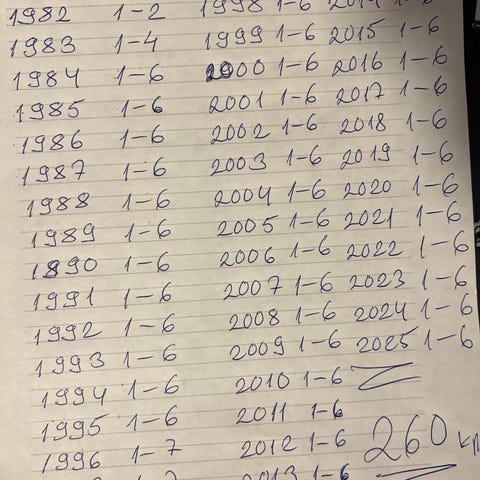 1982 1-2 1998 1-6 2014 1-6
1983 1-4 1999 1-6 2015 1-6
1984 1-6 2000 1-6 2016 1-6
1985 1-6 2001 1-6 2017 1-6
1986 1-6 2002 1-6 2018 1-6
1987 1-6 2003 1-6 2019 1-6
1988 1-6 2004 1-6 2020 1-6
1989 1-6 2005 1-6 2021 1-6
1890 1-6 2006 1-6 2022 1-6
1991 1-6 2007 1-6 2023 1-6
1992 1-6 2008 1-6 2024 1-6
1993 1-6 2009 1-6 2025 1-6
1994 1-6 2010 1-6
1995 1-6 2011 1-6
1996 1-7 2012 1-6 260
2013 1-6